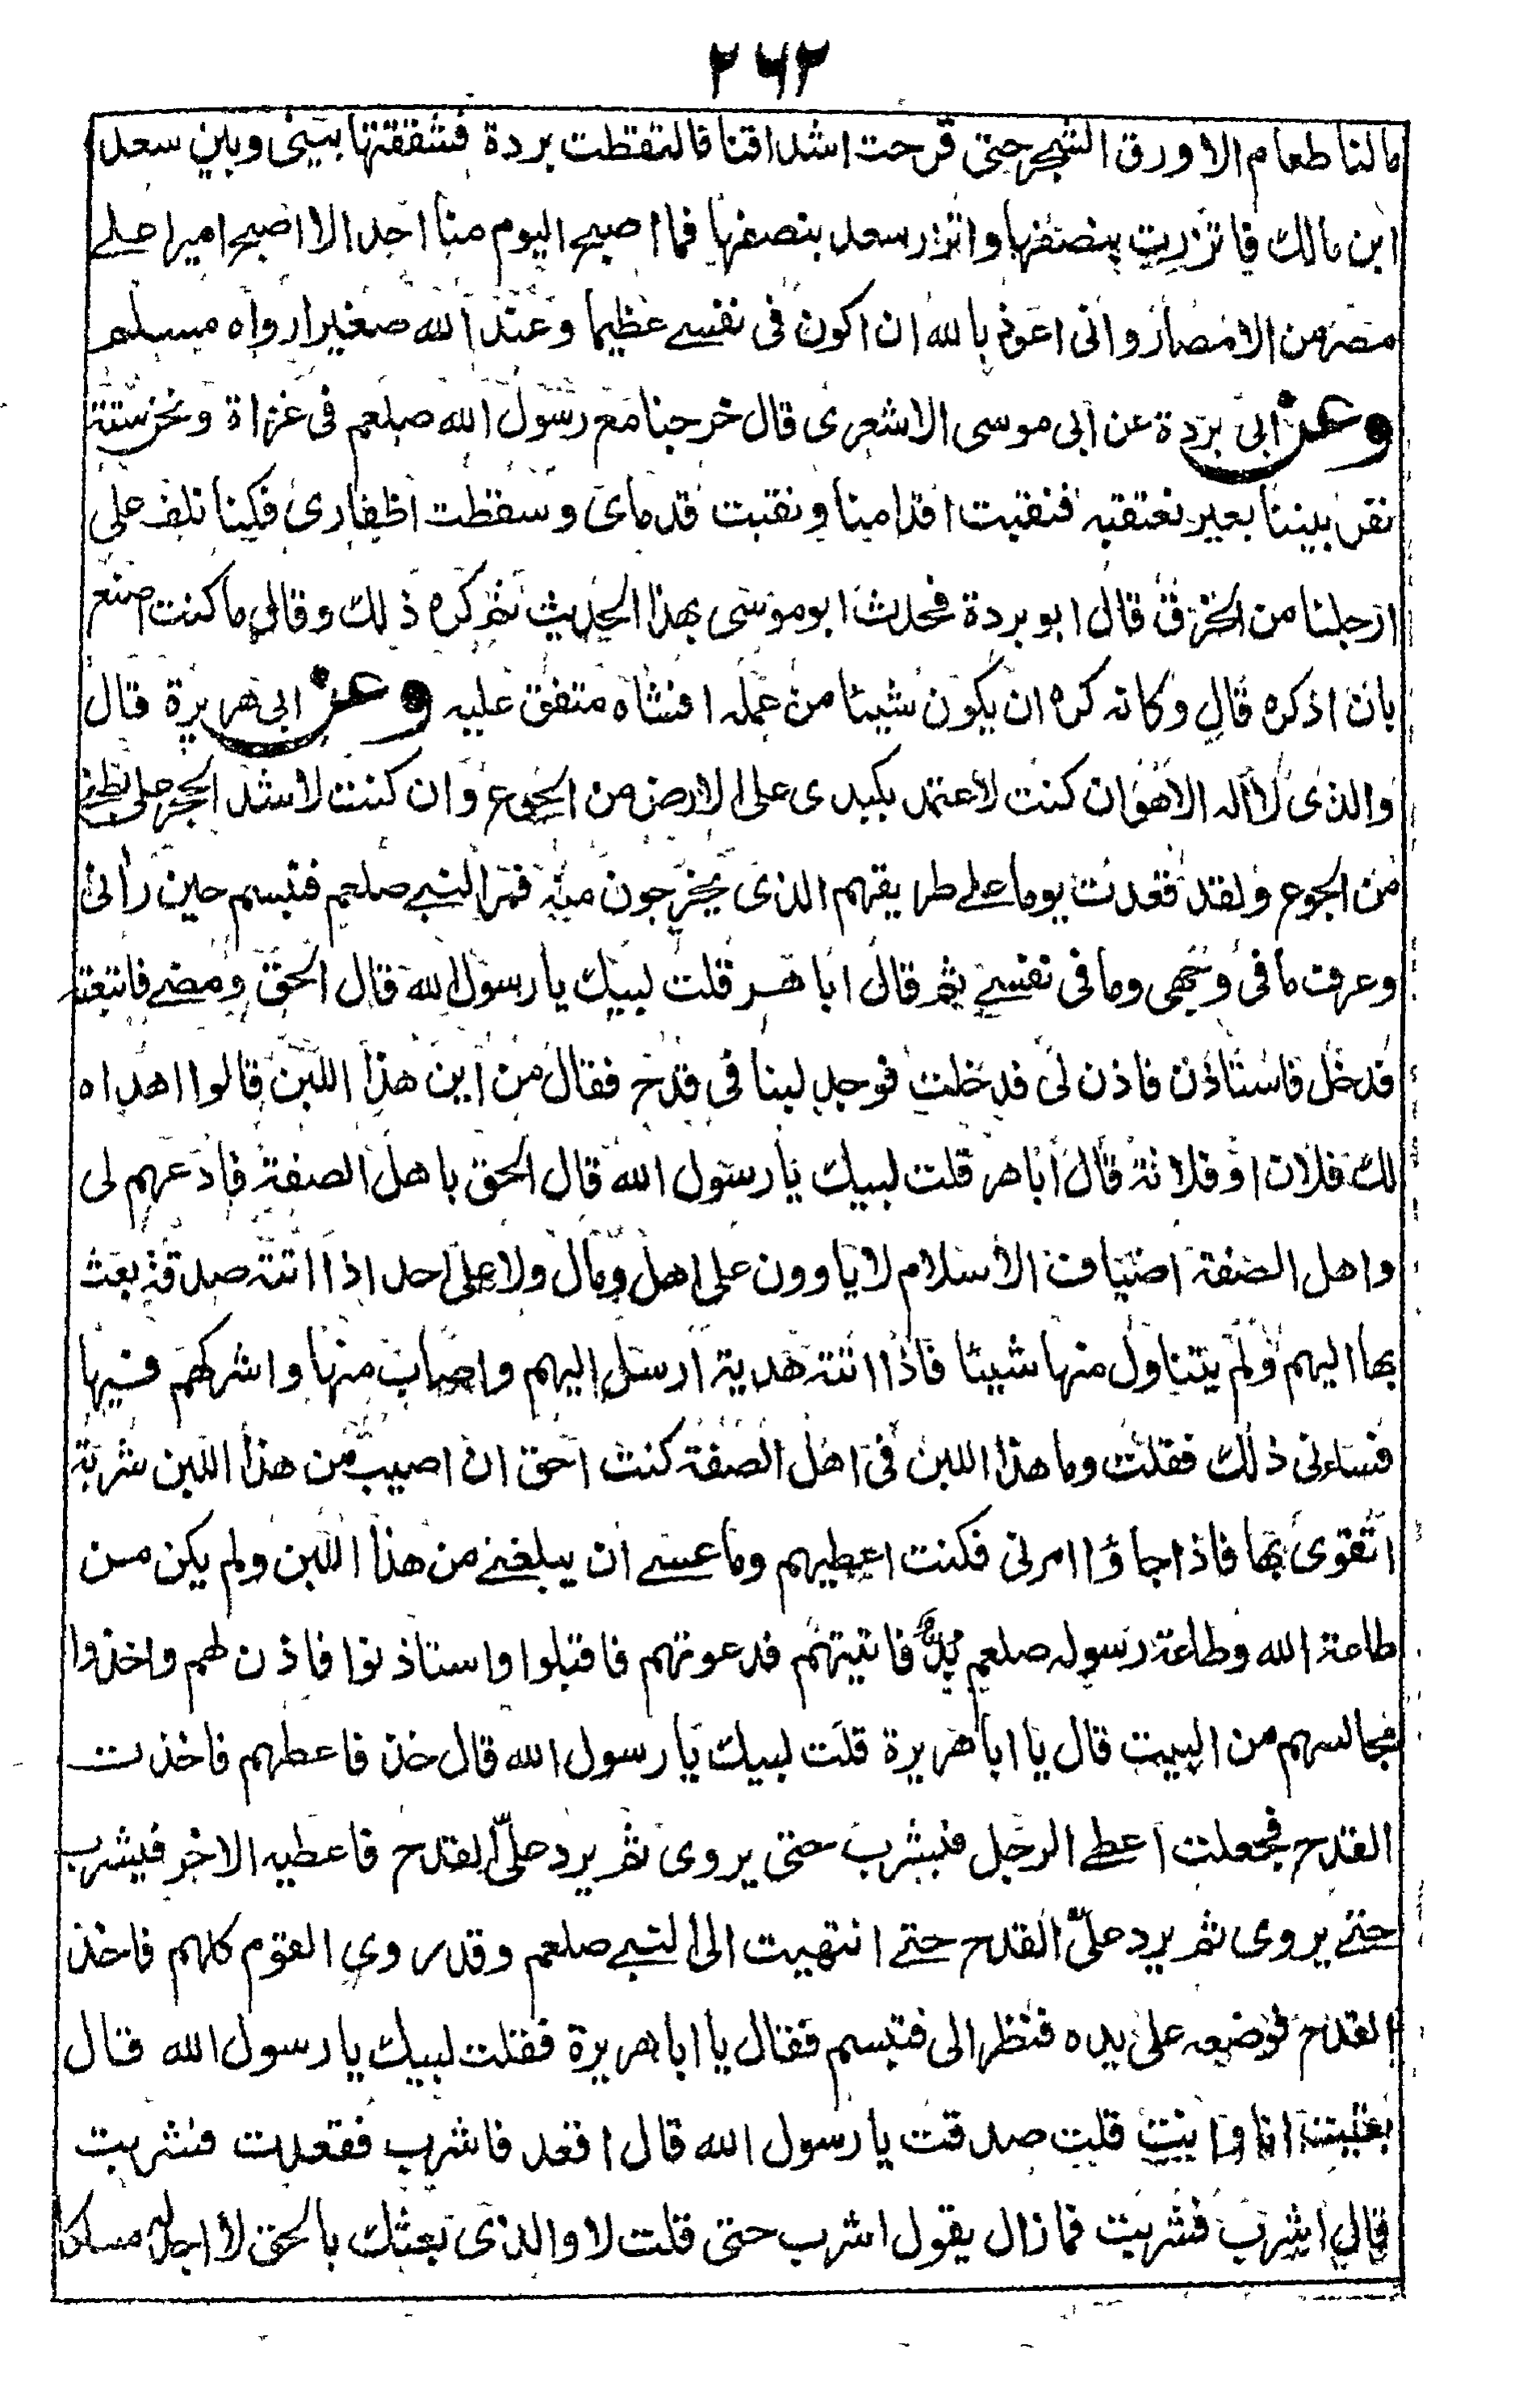 ٢٦٢
مالنا طعام الا ورق الشجر حتى قرحت اشداقنا فالتقطت بردة فشققتها بينى وبين سعد
ابن مالك فاتزرت بنصفها واتزر سعد بنصفها فما اصبح اليوم منا احد الا اصبح اميرا على
مصر من الامصار وانى اعوذ بالله ان اكون فى نفسے عظيما وعند الله صغيرا رواه مسلم
وعن ابى بردة عن ابى موسى الاشعرى قال خرجنا مع رسول الله صلعم فى غزاة ونحن ستة
نفر بيننا بعير نعتقبه فنقبت اقدامنا ونقبت قدماى وسقطت اظفارى فكنا نلف على
ارجلنا من الخرق قال ابو بردة فحدث ابو موسى بهذا الحديث ثم كره ذلك وقال ما كنت اصنع
بان اذكره قال وكانه كره ان يكون شيئا من عمله افشاه متفق عليه وعن ابى هريرة قال
والذى لا اله الا هو ان كنت لاعتمد بكبدى على الارض من الجوع وان كنت لاشد الحجر على بطنى
من الجوع ولقد قعدت يوما علے طريقهم الذى يخرجون منه فمر النبے صلعم فتبسم حين رأنى
وعرف ما فى وجهى وما فى نفسے ثم قال ابا هر قلت لبيك يا رسول الله قال الحق ومضے فاتبعته
فدخل فاستاذن فاذن لى فدخلت فوجد لبنا فى قدح فقال من اين هذا اللبن قالوا اهداه
لك فلان او فلانة قال ابا هر قلت لبيك يا رسول الله قال الحق باهل الصفة فادعهم لى
واهل الصفة اضياف الاسلام لا ياوون على اهل ومال ولا على احد اذا اتته صدقة بعث
بها اليهم ولم يتناول منها شيئا فاذا اتته هدية ارسل اليهم واصاب منها واشركهم فيها
فساءنى ذلك فقلت وما هذا اللبن فى اهل الصفة كنت احق ان اصيب من هذا اللبن شربة
اتقوى بها فاذا جاؤا امرنى فكنت اعطيهم وما عسے ان يبلغنے من هذا اللبن ولم يكن من
طاعة الله وطاعة رسوله صلعم بد فاتيتهم فدعوتهم فاقبلوا واستاذنوا فاذن لهم واخذوا
مجالسهم من البيت قال يا ابا هريرة قلت لبيك يا رسول الله قال خذ فاعطهم فاخذت
القدح فجعلت اعطے الرجل فيشرب حتى يروى ثم يرد علىّ القدح فاعطيه الاخر فيشرب
حتے يروى ثم يرد علىّ القدح حتے انتهيت الى النبے صلعم وقد روى القوم كلهم فاخذ
القدح فوضعه على يده فنظر الى فتبسم فقال يا ابا هريرة فقلت لبيك يا رسول الله قال
بقيت انا وانت قلت صدقت يا رسول الله قال اقعد فاشرب فقعدت فشربت
قال اشرب فشربت فما زال يقول اشرب حتى قلت لا والذى بعثك بالحق لا اجد له مسلكا